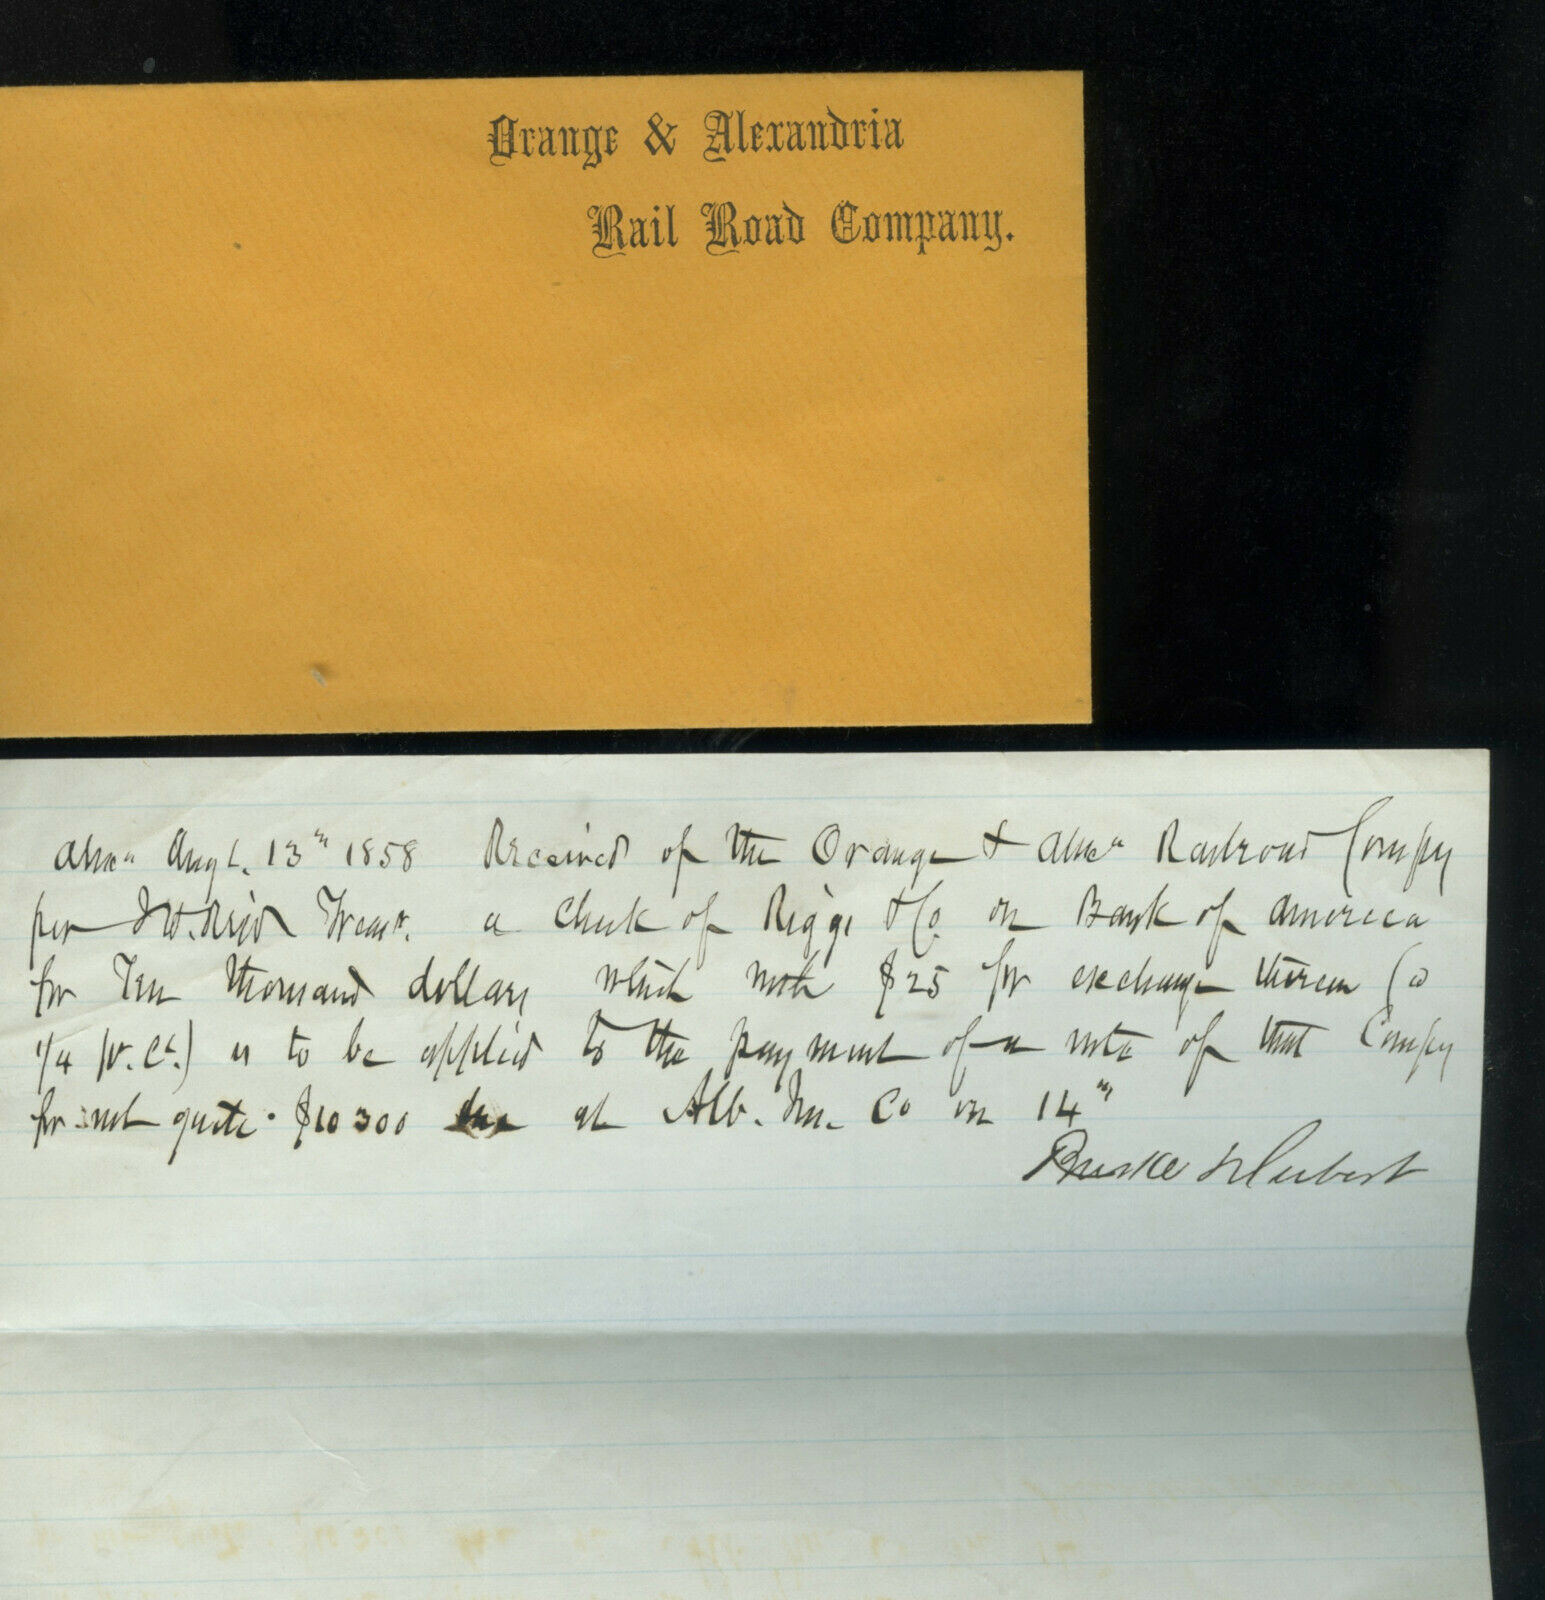 Orange & Alexandria
Rail Road Company.
Alexa Augt. 13th 1858 Received of the Orange & Alexa Railroad Compy
per J W. Reid Treasr. a check of Riggs & Co. on Bank of America
for Ten thousand dollars which with $25 for exchange thereon (@
1/4 pr. Ct.) is to be applied to the payment of a note of that Compy
for not quite $10300 due at Alb. Ins. Co on 14th
Burke & Herbert